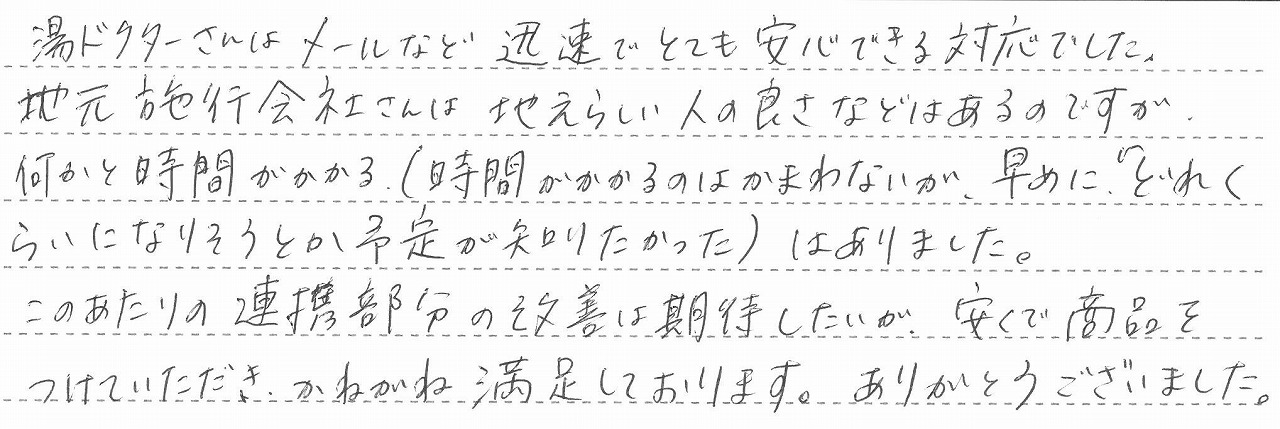 湯ドクターさんはメールなど迅速でとても安心できる対応でした。
地元施行会社さんは地元らしい人の良さなどはあるのですが、
何かと時間がかかる。(時間がかかるのはかまわないが、早めに、どれく
らいになりそうとか予定が知りたかった)はありました。
このあたりの連携部分の改善は期待したいが、安くで商品を
つけていただき、かねがね満足しております。ありがとうございました。